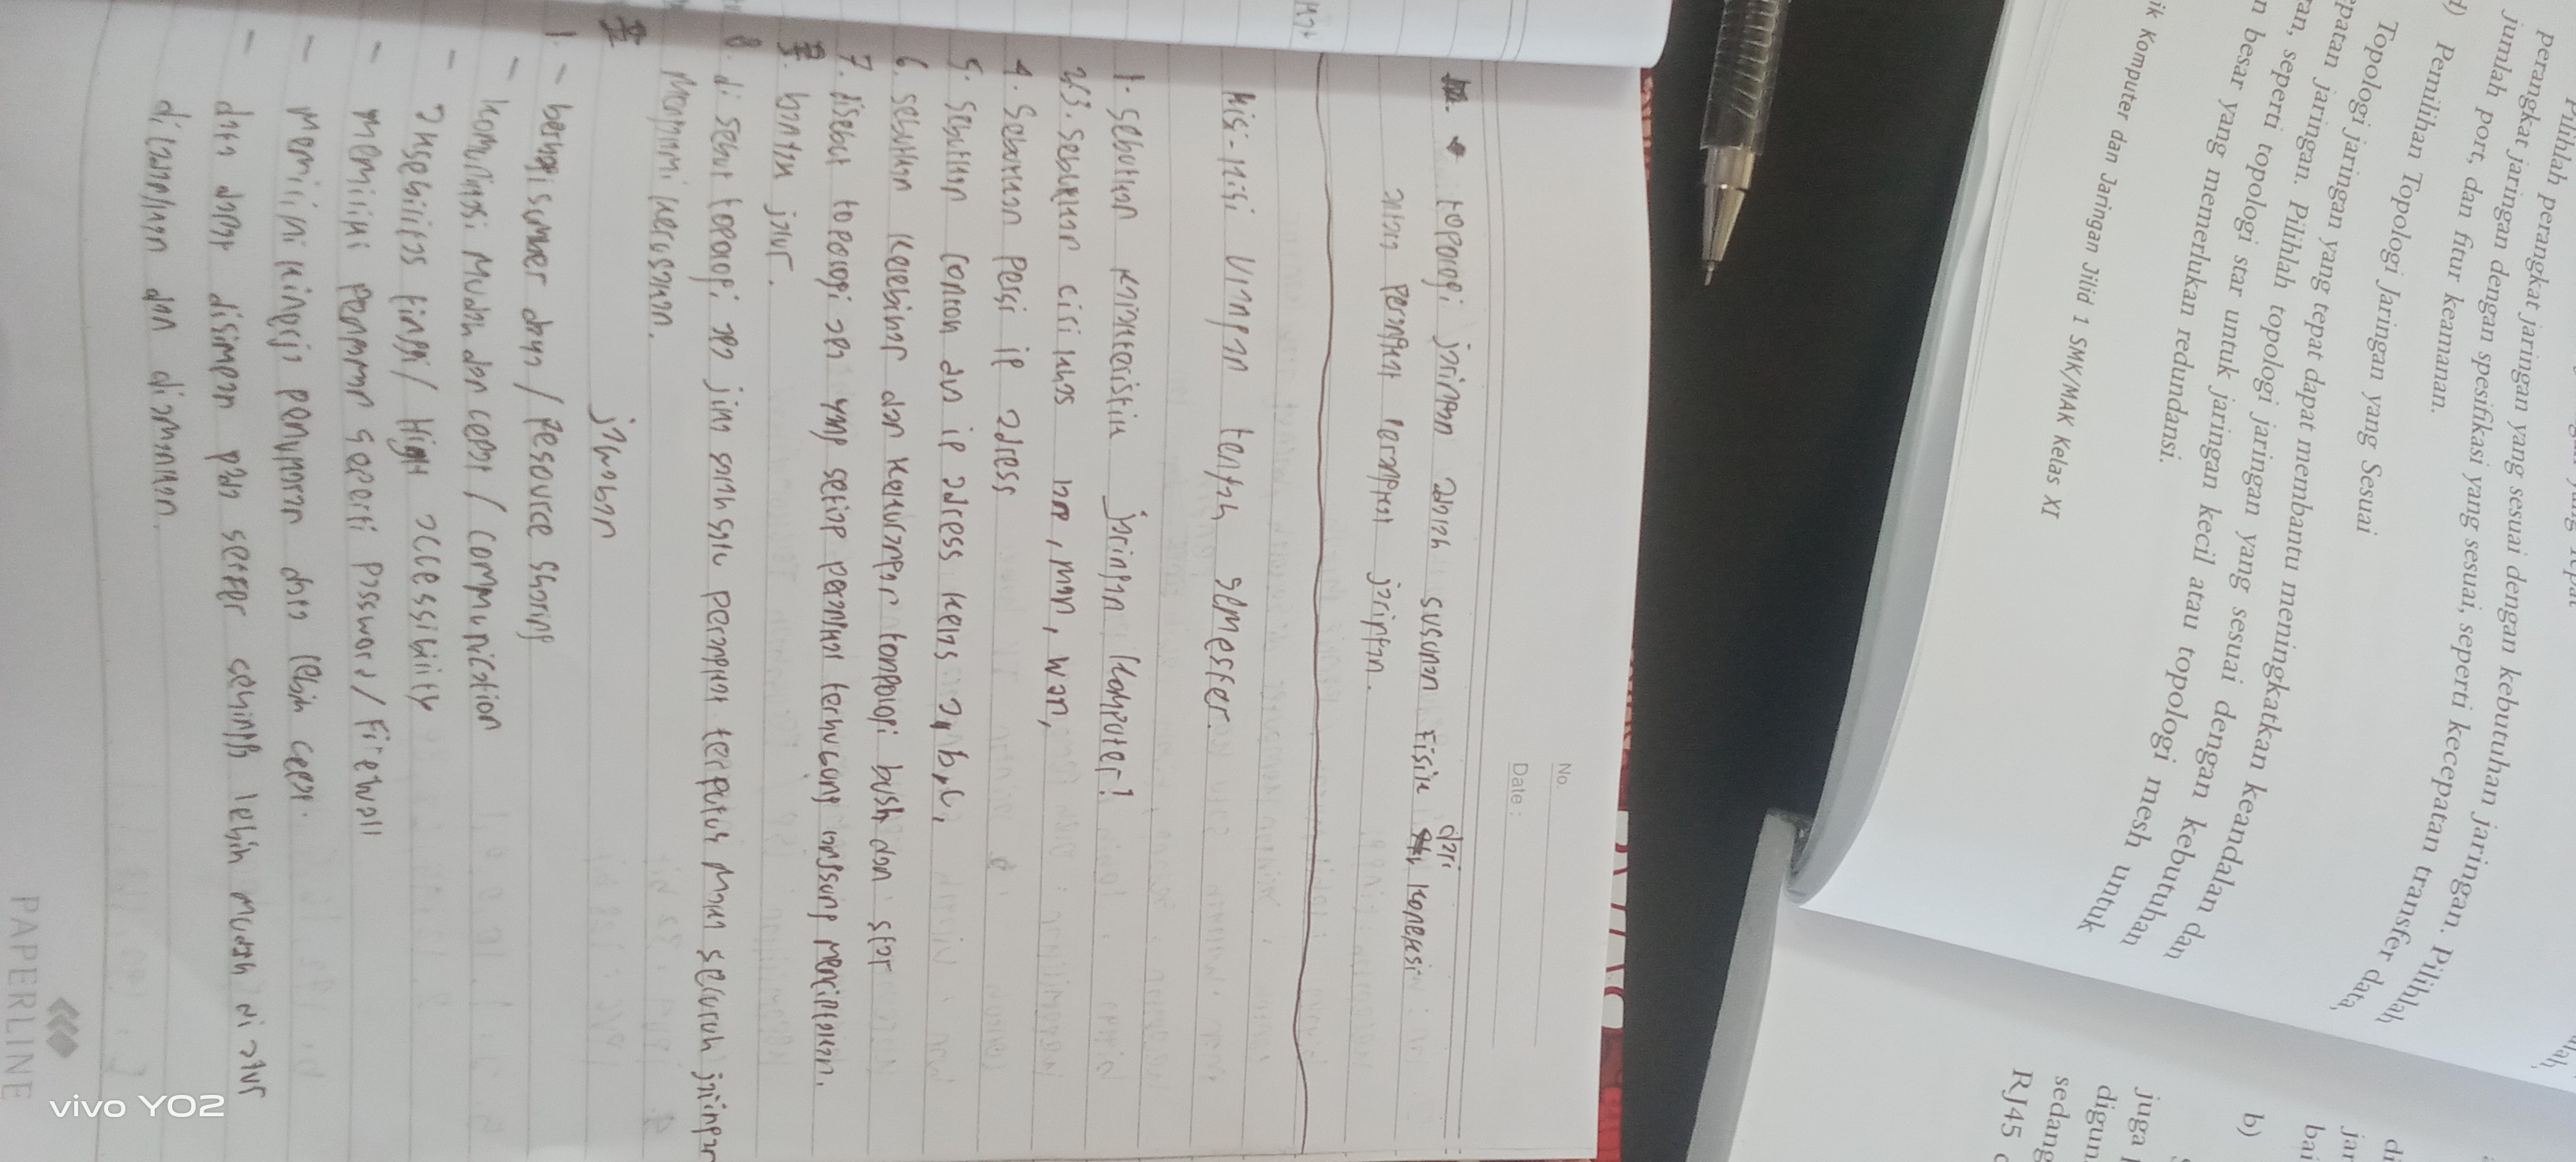 yang Tepat
Pilihlah perangkat jaringan yang sesuai dengan kebutuhan jaringan. Pilihlah
perangkat jaringan dengan spesifikasi yang sesuai, seperti kecepatan transfer data,
jumlah port, dan fitur keamanan.
d) Pemilihan Topologi Jaringan yang Sesuai
Topologi jaringan yang tepat dapat membantu meningkatkan keandalan dan
epatan jaringan. Pilihlah topologi jaringan yang sesuai dengan kebutuhan
ran, seperti topologi star untuk jaringan kecil atau topologi mesh untuk
n besar yang memerlukan redundansi.
ik Komputer dan Jaringan Jilid 1 SMK/MAK Kelas XI
lah,
di
jar
bai
b)
juga
digun
sedang
RJ45
No.
Date :
topologi jaringan adalah susunan Fisik dari koneksi
antara perangkat perangkat jaringan.
kisi-kisi Ulangan tengah semester.
1. sebutkan karakteristik jaringan komputer!
2/3. sebutkan ciri khas lan, man, wan,
4. Sebutkan persi ip adress
5. sebutkan contoh ip adress kelas a, b, c,
6. sebutkan kelebihan dan kekurangan tonpologi bush dan star
7. disebut topologi apa yang setiap perangkat terhubung langsung menciptakan.
bantak jalur.
8. di sebut topologi apa jika salah satu perangkat terputus maka seluruh jaringan
Mengalami kerusakan.
jawaban
1. - berbagi sumber daya / Resource sharing
- komunikasi Mudah dan cepat / communication
- aksebilitas tinggi / High accessibility
- memiliki pengaman seperti Password / Firewall
- memiliki kinerja data lebih cepat.
- data dapat disimpan pada serfer sehingga lebih mudah di atur
dicadangkan dan diamankan.
PAPERLINE
vivo Y02